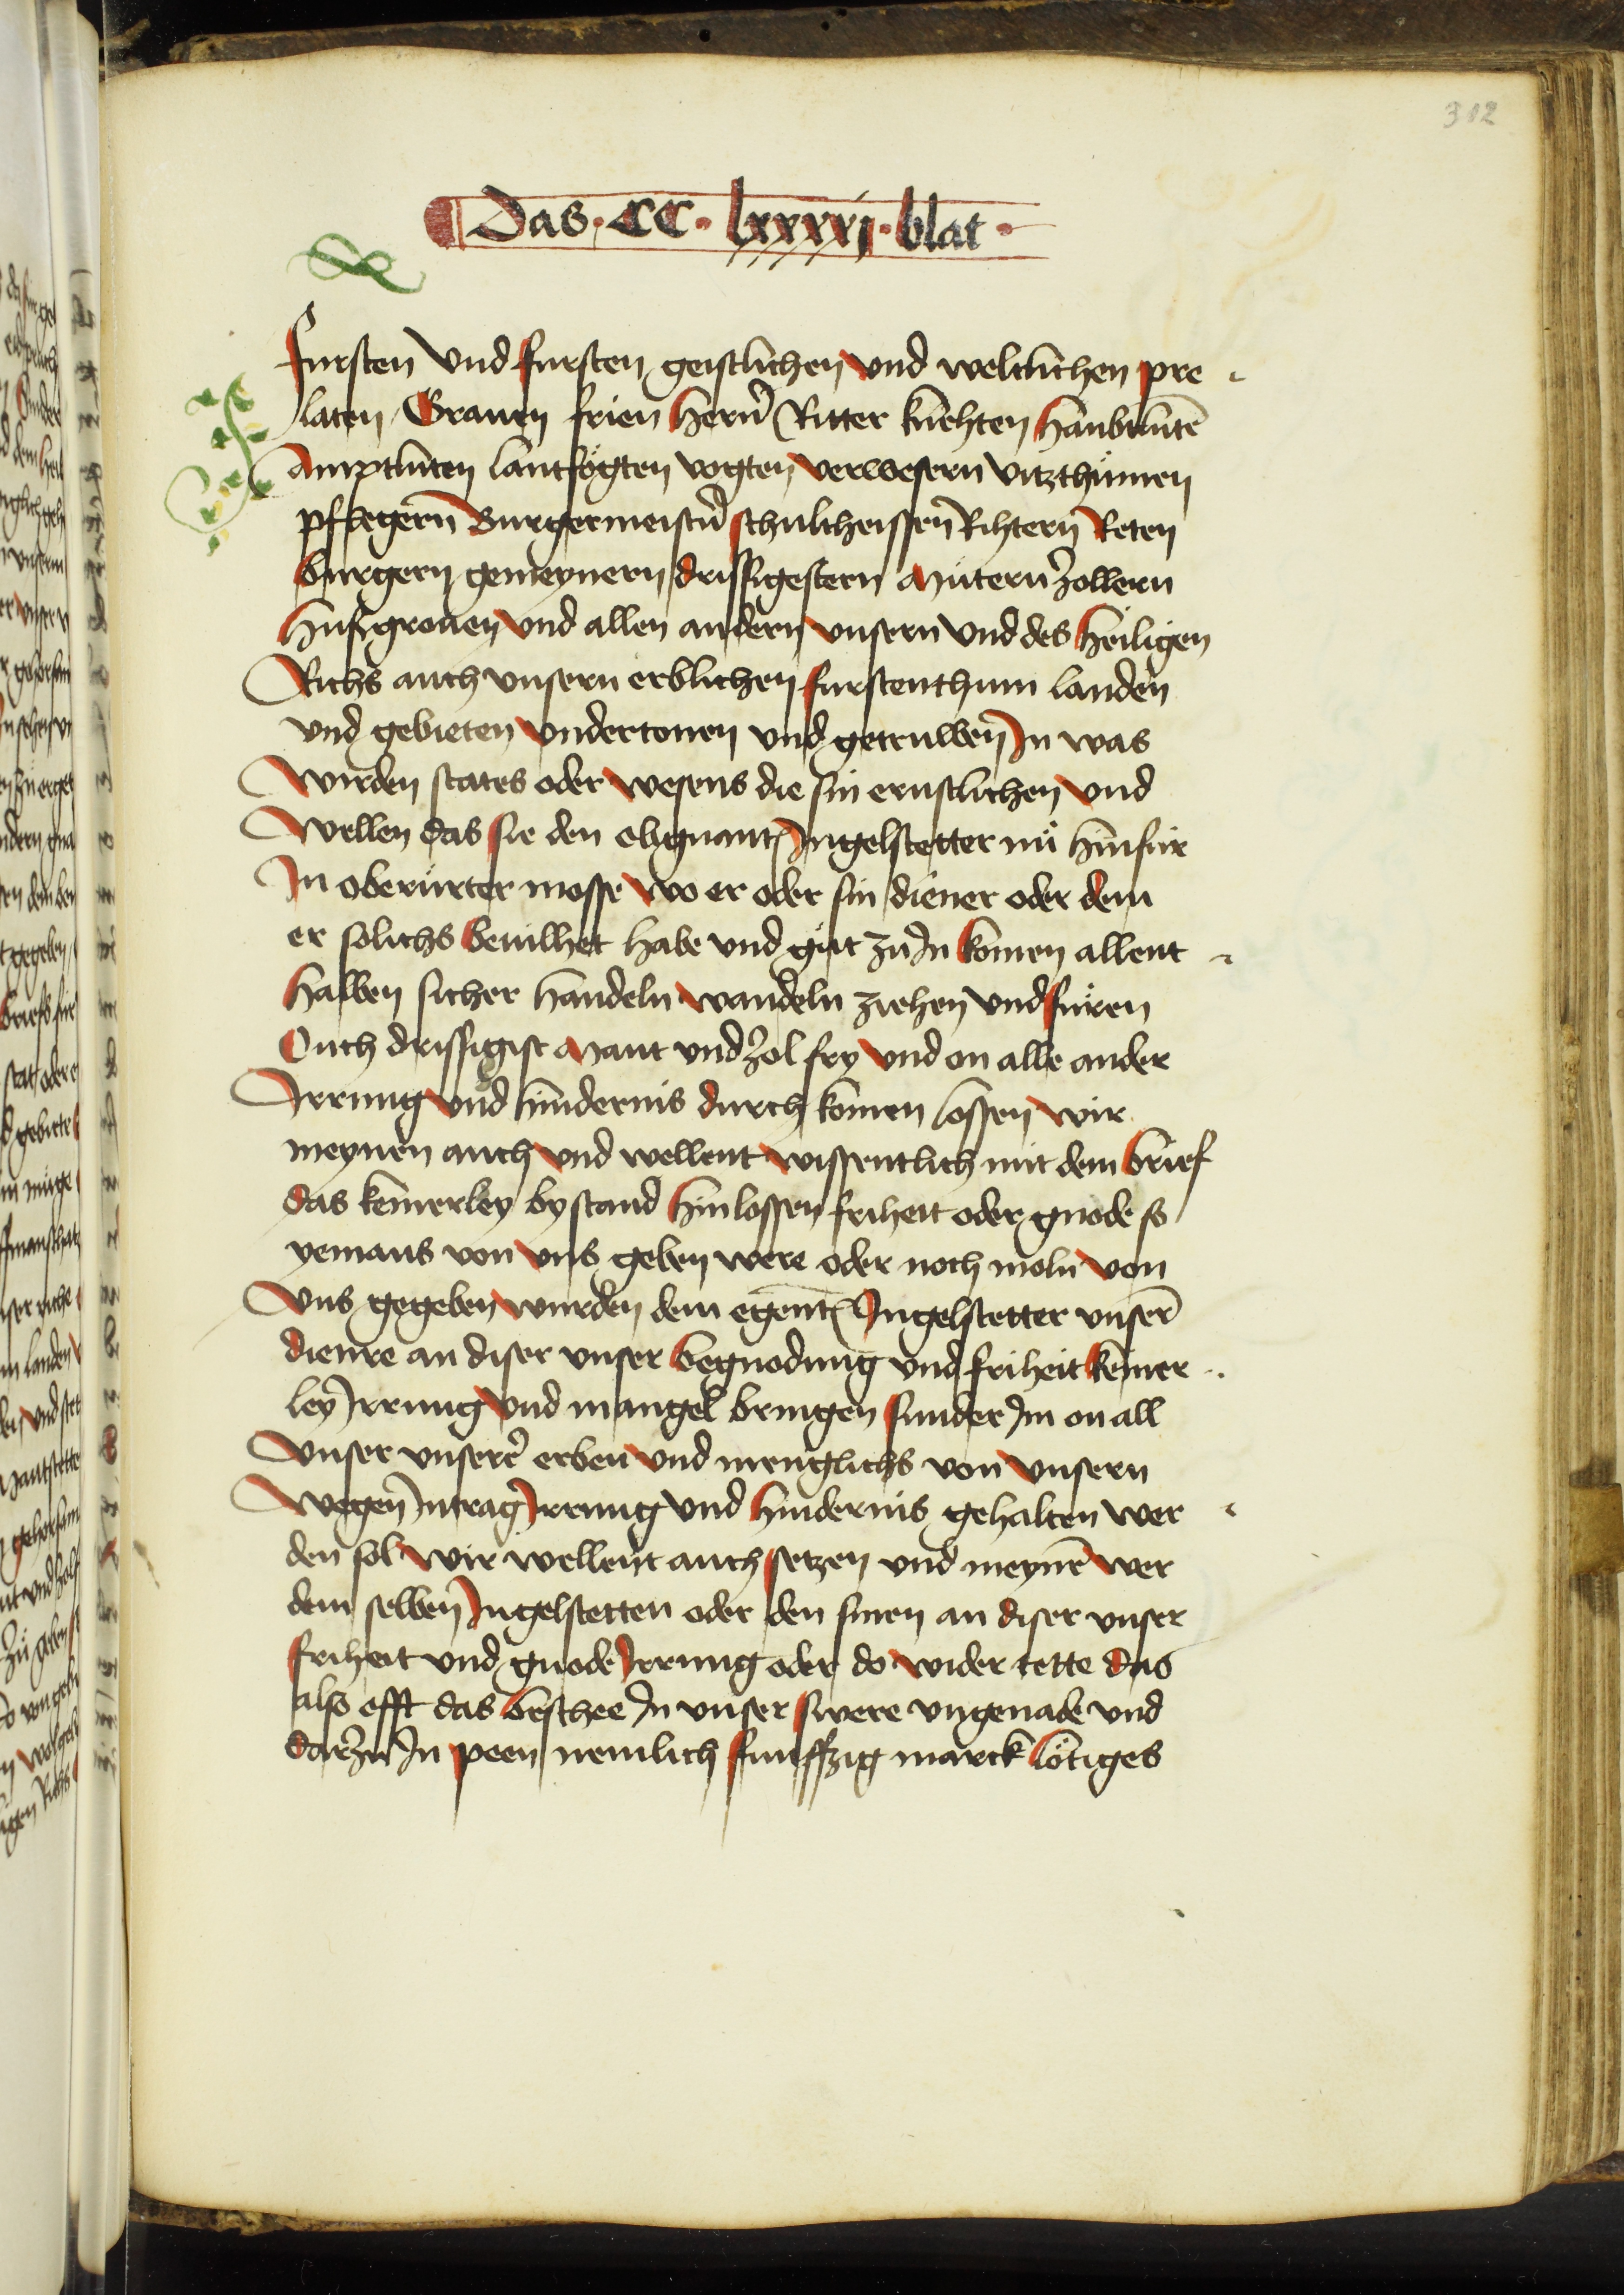 312
Das · CC · lxxxxj · blat ·
fursten vnd fursten geistlichen vnd weltlichen pre
laten Grauen frien hern̄ Ritter knehten haubtlutē
Amptluten lantfögten vogten verwesern vitzthumen
pflegern Burgermeistn̄ schultheissen Rihtern Reten
burgern gemeynern drissigestern Mutern zollern
huszgrouen vnd allen andern vnsern vnd des heiligen
Richs auch vnsern erblichen furstenthum landen
vnd gebieten vndertonen vnd getruwen In was
wirden states oder wesens die sin ernstlichen vnd
wellen das sie den obgnantn Ingelstetter nü hinfür
In oberürter mosse wo er oder sin diener oder dem
er solichs beuilhet habe vnd güt zu In komen allent
halben sicher handeln wandeln ziehen vnd füren
Ouch drissigist Maut vnd zol fry vnd on alle ander
Irrung vnd hindernis durch komen lossen wir
meynen auch vnd wellent wissentlich mit dem brief
das keinerley bystand hinlossen friheit oder gnode so
yemans von vns geben were oder noch moln von
vns gegeben wurden dem egentn Ingelstetter vnserm̄
dienre an diser vnser begnodung vnd friheit keiner
ley Irrung vnd mangel bringen sunder Im on all
vnser vnserer̄ erben vnd menglichs von vnsern
wegen Intrag Irrung vnd hindernis gehalten wer
den sol wir wellent auch setzen vnd meynē wer
dem selben Ingelstetten oder den sinen an diser vnser
friheit vnd gnode Irrung oder do wider tette das
also offt das beschee In vnser swere vngenade vnd
darzu In peen nemlich funffzig marck lötiges